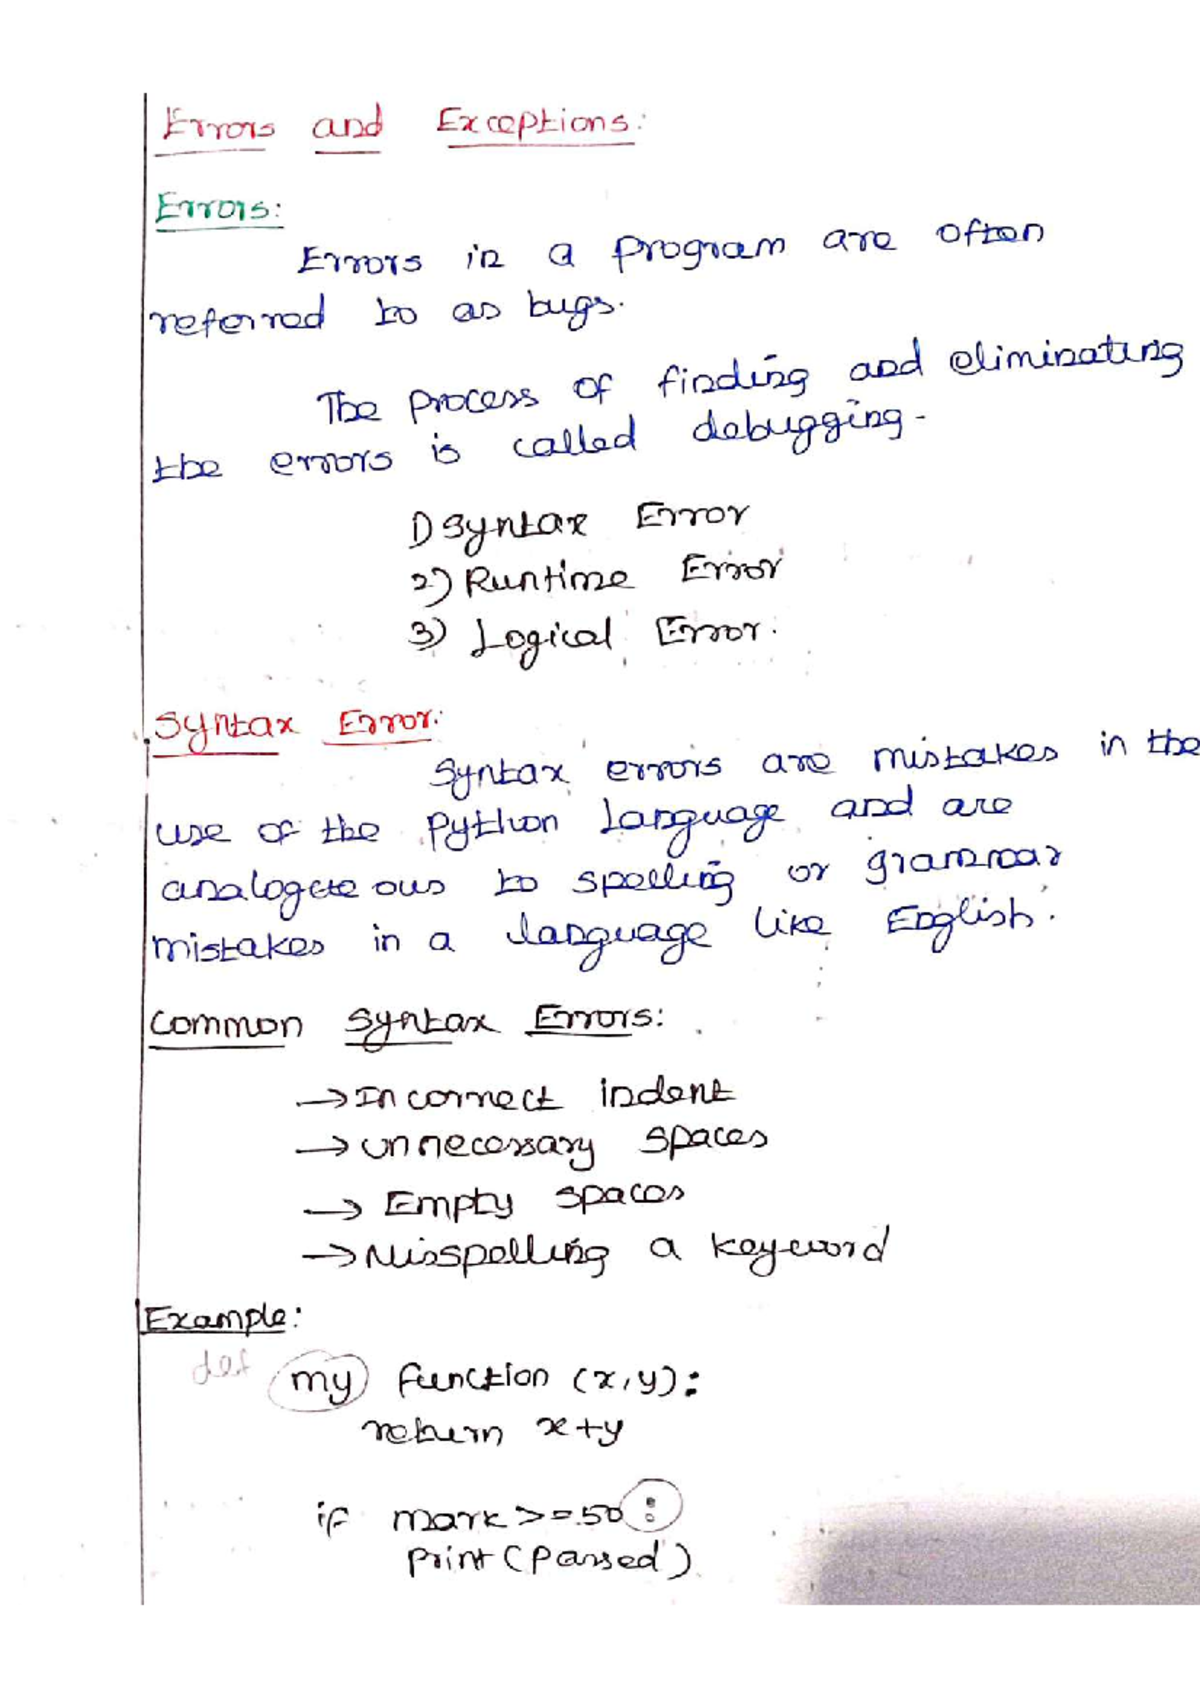 Errors and Exceptions:
Errors:
Errors in a program are often
referred to as bugs.
The process of finding and eliminating
the errors is called debugging.
1) Syntax Error
2) Runtime Error
3) Logical Error.
Syntax Error:
Syntax errors are mistakes in the
use of the Python language and are
analogeteous to spelling or grammar
mistakes in a language like English.
Common Syntax Errors:
→ Incorrect indent
→ unnecessary spaces
→ Empty spaces
→ Misspelling a keyword
Example:
def my function (x,y):
return x+y
if mark>=50:
print(Parsed)